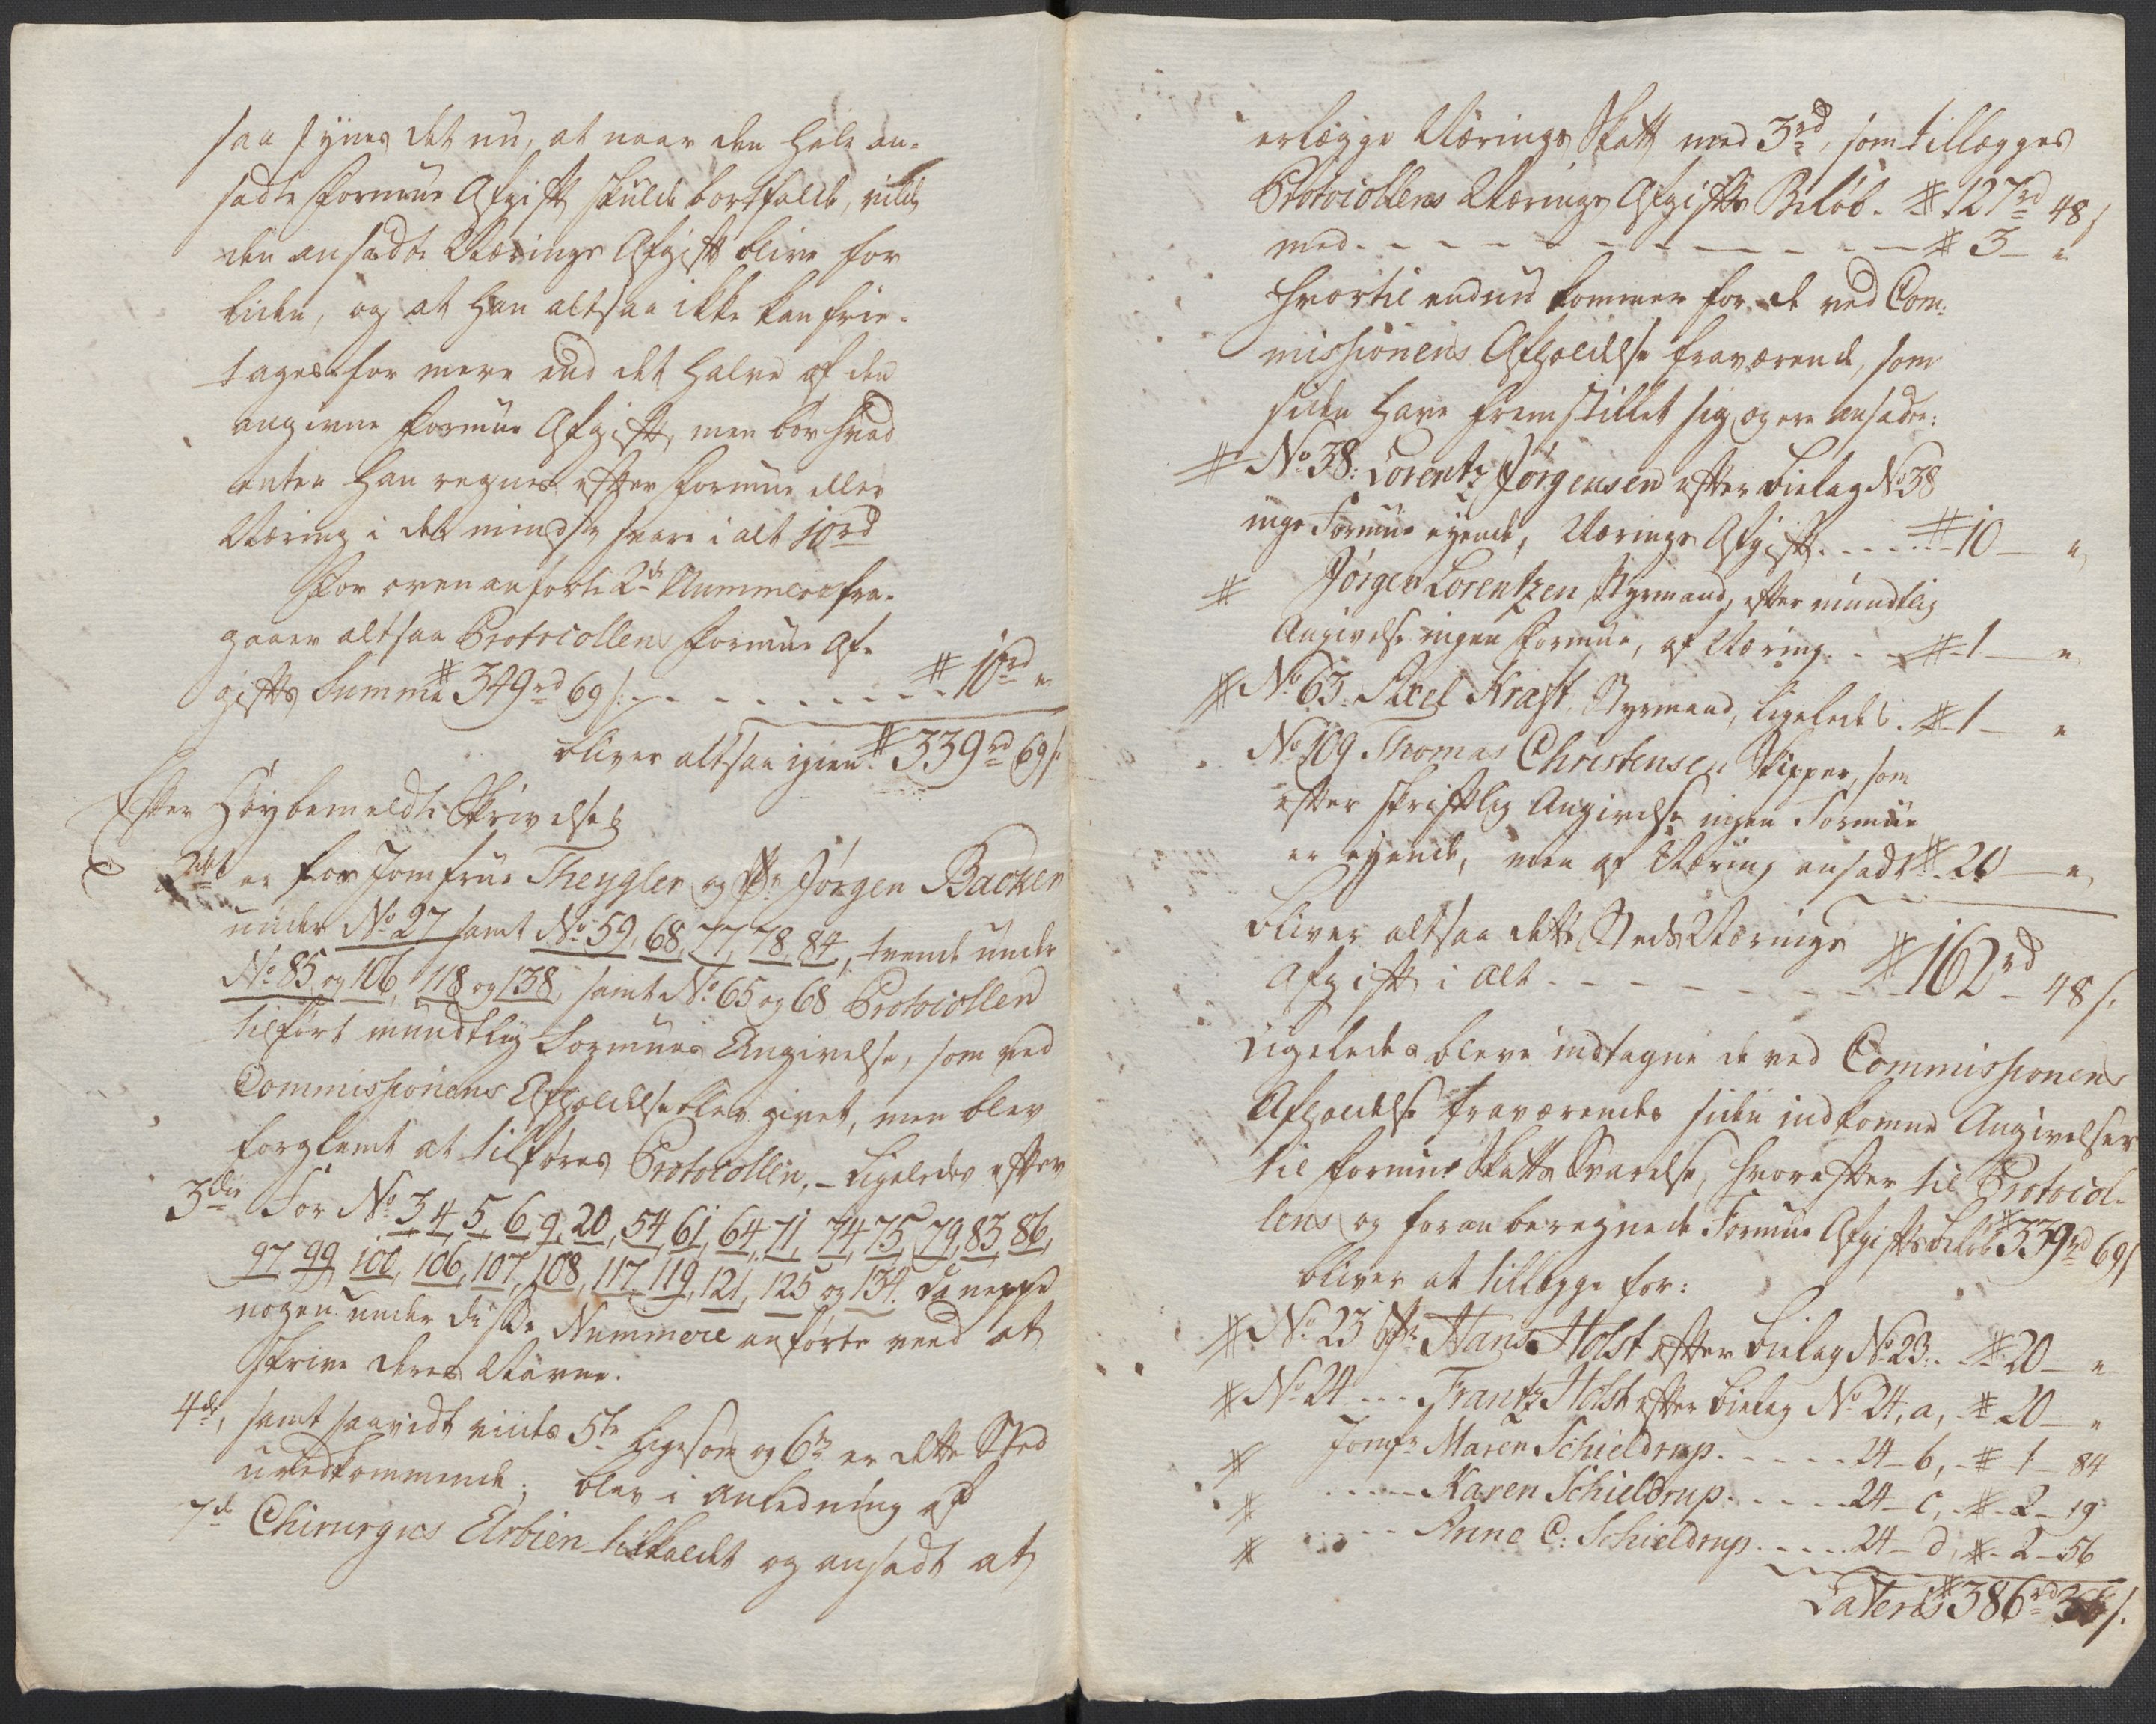 saa synes det nu, at naar den hele an-
satte Formue Afgift skulde bortfalde, vilde
den ansadte Nærings Afgift blive for
liden, og at han altsaa ikke kan frie-
tages for mere end det halve af den
angivne Formue Afgift, men bør hvad
enten han regnes efter Formue eller
Næring i det mindste svare i alt 10rd
For ovenanførte 2de Nummere fra-
gaaer altsaa Protocollens Formue Af-
gifts Summe # 349rd 69 s. - - - - - - - # 10rd "
bliver altsaa igien # 339rd 69 s.
Efter Høybemeldte Skrivelses
2det er for Jomfrue Theygler og Hr. Jørgen Backer
under No. 27 samt No. 59, 68, 77, 78, 84, tvende under
No. 85 og 106, 118 og 138, samt No. 65 og 68 Protocollen
tilført mundtlig Formues Angivelse, som ved
Commissionens Afholdelse blev givet, men blev
forglemt at tilføres Protocollen, - Ligeledes efter
3die For No. 3, 4, 5, 6, 9, 20, 54, 61, 64, 71, 74, 75, 79, 83, 86,
97, 99, 100, 106, 107, 108, 117, 119, 121, 125 og 134. da neppe
nogen under disse Nummere anførte veed at
skrive deres Navne.
4de, samt saavidt vides 5te ligesom og 6te er dette Sted
uvedkommende; blev i Anledning af
7de Chirurgus Elrbien tilkaldt og ansadt at
erlægge Nærings Skatt med 3rd, som tillægges
Protocollens Nærings Afgifts Beløb - # 127rd 48 s
med - - - - - - - - - - # 3 - "
Hvortil endnu kommer for de ved Com-
missionens Afholdelse fraværende, som
siden have fremstillet sig og ere ansadte:
# No. 38: Lorentz Jørgensen efter Bielag No. 38
inge Formue eyende, Nærings Afgift - - - - # 10 - "
# Jørgen Lorentzen, Styrmand, efter mundtlig
Angivelse ingen Formue, af Næring - - # 1 - "
# No. 63. Axel Kraft, Styrmand, ligeledes. # 1 - "
No. 109 Thomas Christensen Skipper, som
efter skriftlig Angivelse ingen Formue
er eyende, men af Næring ansadt # 20 - "
bliver altsaa dette Steds Nærings
Afgift i alt - - - - - - - # 162rd 48 s.
Ligeledes bleve indtagne de ved Commissionens
Afholdelse fraværendes siden indkomne Angivelser
til Formue Skatts Svarelse, hvorefter til Protocol-
lens og foran beregnede Formue Afgifts Beløb # 339rd 69 s
bliver at tillægge for:
# No. 23 Hr. Hans Holst efter Bielag No. 23. - # 20 - "
# No. 24 - - - Frantz Holst efter Bielag No. 24, a, - # 20 - "
# Jomfr. Maren Schieldrup - - - - - 24 - b, - # 1 - 84
# - - - - Karen Schieldrup - - - - - 24 - c, - # 2 - 19
# - - - Anne C: Schieldrup - - - - - 24 - d, # - 2 - 56
Lateris # 386rd 36 s.